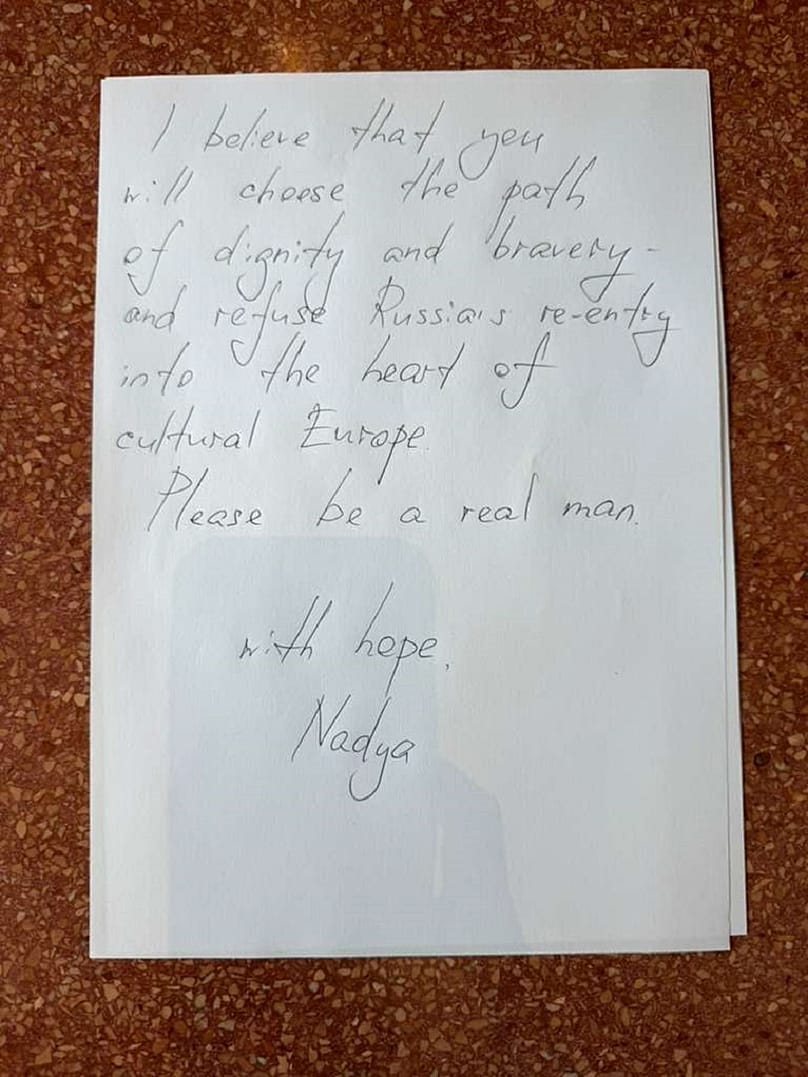 I believe that you
will choose the path
of dignity and bravery -
and refuse Russia's re-entry
into the heart of
cultural Europe.
Please be a real man.
with hope,
Nadya